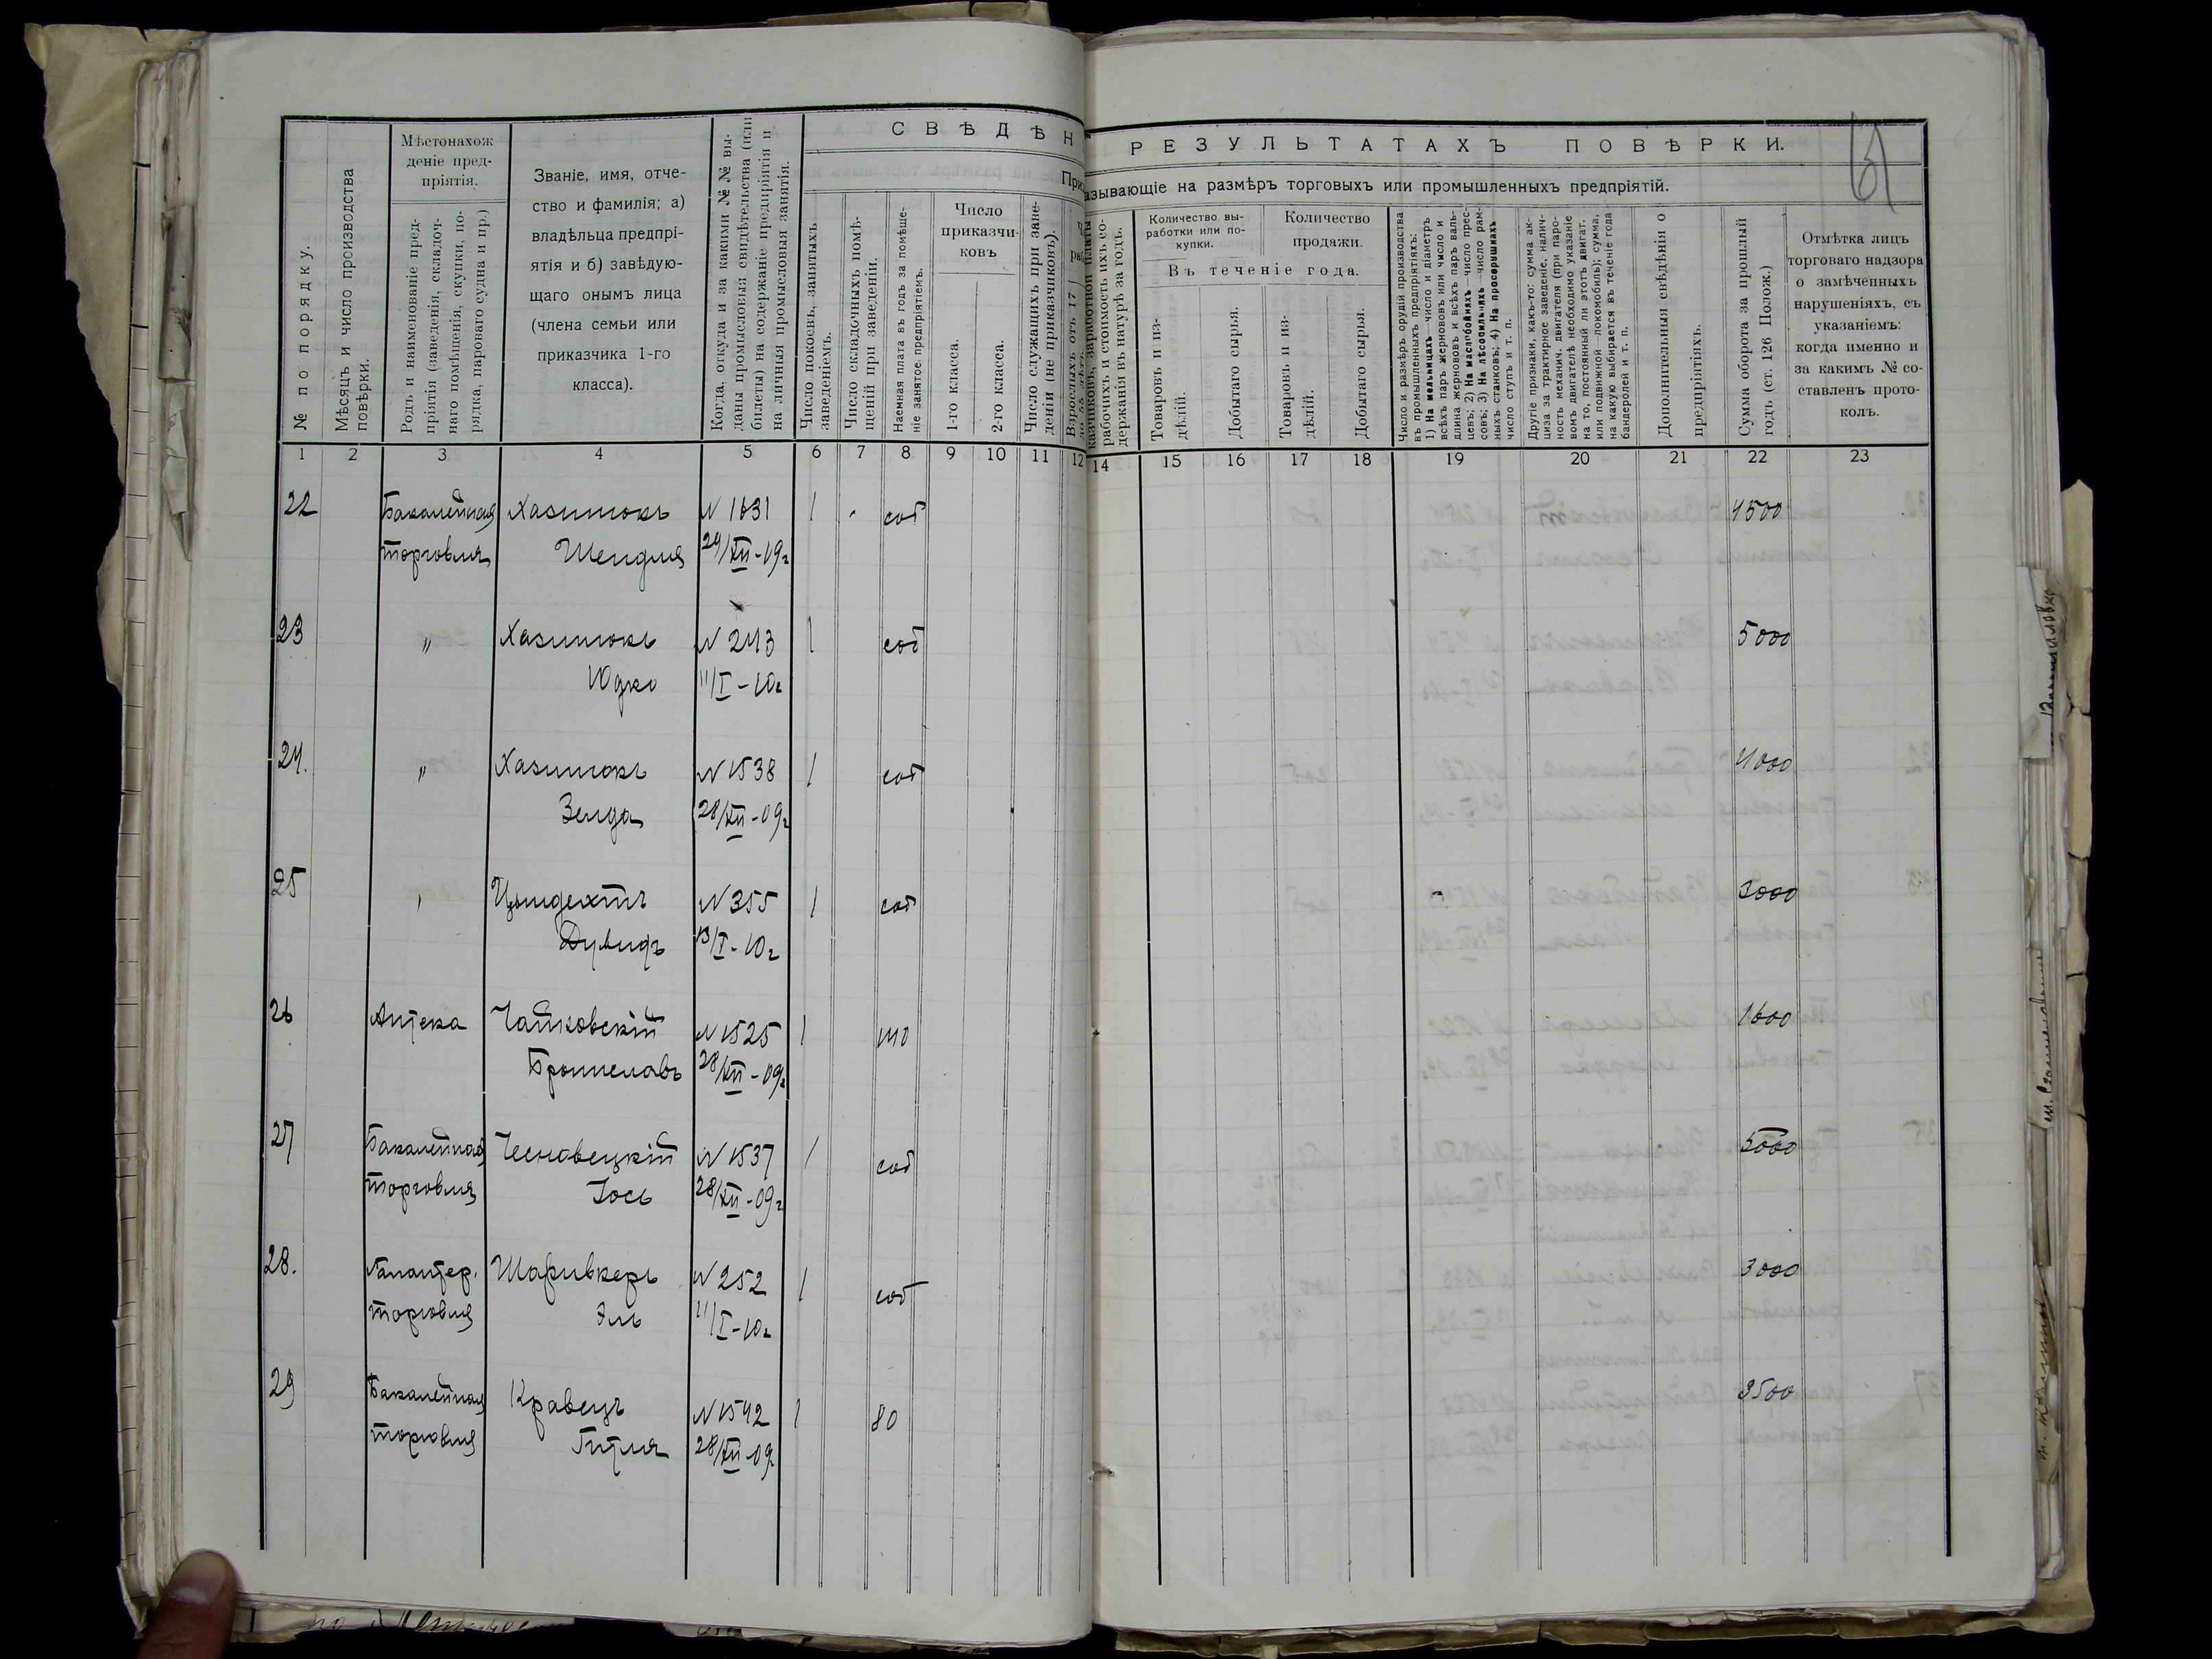 СВѢДѢН
РЕЗУЛЬТАТАХЪ ПОВѢРКИ.
61
При
азывающіе на размѣръ торговыхъ или промышленныхъ предпріятій.
№ по порядку.
Мѣсяцъ и число производства
повѣрки.
Мѣстонахож
деніе пред-
пріятія.
Родъ и наименованіе пред-
пріятія (заведенія, складоч-
наго помѣщенія, скупки, по-
рядка, парового судна и пр.)
Званіе, имя, отче-
ство и фамилія; а)
владѣльца предпрі-
ятія и б) завѣдую-
щаго онымъ лица
(члена семьи или
приказчика 1-го
класса).
Когда, откуда и за какими №№ вы-
даны промысловыя свидѣтельства (или
билеты) на содержаніе предпріятія и
на личныя промысловыя занятія.
Число покоевъ, занятыхъ
заведеніемъ.
Число складочныхъ помѣ-
щеній при заведеніи.
Наемная плата въ годъ за помѣще-
ніе занятое предпріятіемъ.
Число
приказчи-
ковъ
1-го класса.
2-го класса.
Число служащихъ при заве-
деніи (не приказчиковъ).
Взрослыхъ отъ 17
казчиковъ, заработной платы
рабочихъ и стоимость ихъ со-
держанія въ натурѣ за годъ.
Количество вы-
работки или по-
купки.
Количество
продажи.
Въ теченіе года.
Товаровъ и из-
дѣлій.
Добытаго сырья.
Товаровъ и из-
дѣлій.
Добытаго сырья.
Число и размѣръ орудій производства
въ промышленныхъ предпріятіяхъ:
1) На мельницахъ—число и діаметръ
всѣхъ паръ жернововъ или число и
длина жернововъ и всѣхъ паръ валь-
цевъ; 2) На маслобойняхъ—число прес-
совъ; 3) На лѣсопильняхъ—число рам-
ныхъ станковъ; 4) На просорушкахъ
число ступъ и т. п.
Другіе признаки, какъ-то: сумма ак-
циза за трактирное заведеніе, налич-
ность механич. двигателя (при паро-
вомъ двигателѣ необходимо указаніе
на то, постоянный ли этотъ двигат.
или подвижной—локомобиль); сумма,
на какую выбирается въ теченіе года
бандеролей и т. п.
Дополнительныя свѣдѣнія о
предпріятіяхъ.
Сумма оборота за прошлый
годъ (ст. 126 Полож.)
Отмѣтка лицъ
торговаго надзора
о замѣченныхъ
нарушеніяхъ, съ
указаніемъ:
когда именно и
за какимъ № со-
ставленъ прото-
колъ.
1 2 3 4 5 6 7 8 9 10 11 12 14 15 16 17 18 19 20 21 22 23
22 Бакалейная Хазинокъ N 1631 1 соб 4500
торговля Шендля 29/XII-09г
23 " Хазинокъ N 243 1 соб 5000
Юдко 11/I-10г
24. " Хазинокъ N 1538 1 соб 4000
Зелда 28/XII-09г
25 " Цындехтъ N 355 1 соб 3000
Дувидъ 13/I-10г
26 Аптека Чайковскій N 1525 1 1600
Брониславъ 28/XII-09г
27 Бакалейная Чесновецкій N 1537 1 соб 5000
торговля Іось 28/XII-09г
28. Галантер. Шаривкеръ N 252 1 соб 3000
торговля Эль 11/I-10г
29 Бакалейная Кравецъ N 1542 1 80 3500
торговля Гитля 28/XII-09